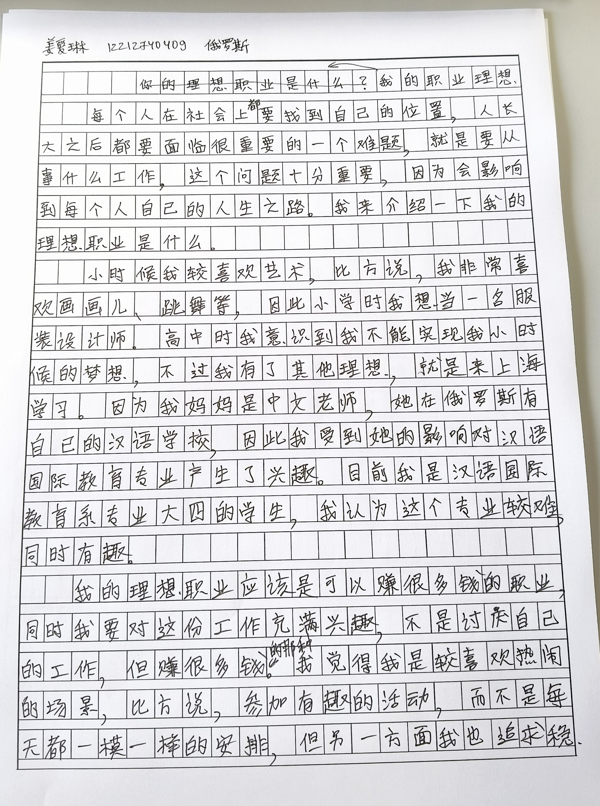 姜夏琳 12212740409 俄罗斯
你的理想职业是什么？我的职业理想
每个人在社会上都要找到自己的位置，人长
大之后都要面临很重要的一个难题，就是要从
事什么工作，这个问题十分重要，因为会影响
到每个人自己的人生之路。我来介绍一下我的
理想职业是什么。
小时候我较喜欢艺术，比方说，我非常喜
欢画画儿、跳舞等，因此小学时我想当一名服
装设计师。高中时我意识到我不能实现我小时
候的梦想，不过我有了其他理想，就是来上海
学习。因为我妈妈是中文老师，她在俄罗斯有
自己的汉语学校，因此我受到她的影响对汉语
国际教育专业产生了兴趣。目前我是汉语国际
教育系专业大四的学生，我认为这个专业较难，
同时有趣。
我的理想职业应该是可以赚很多钱的职业，
同时我要对这份工作充满兴趣，不是讨厌自己
的工作，但赚很多钱的那种。我觉得我是较喜欢热闹
的场景，比方说，参加有趣的活动，而不是每
天都一模一样的安排，但另一方面我也追求稳